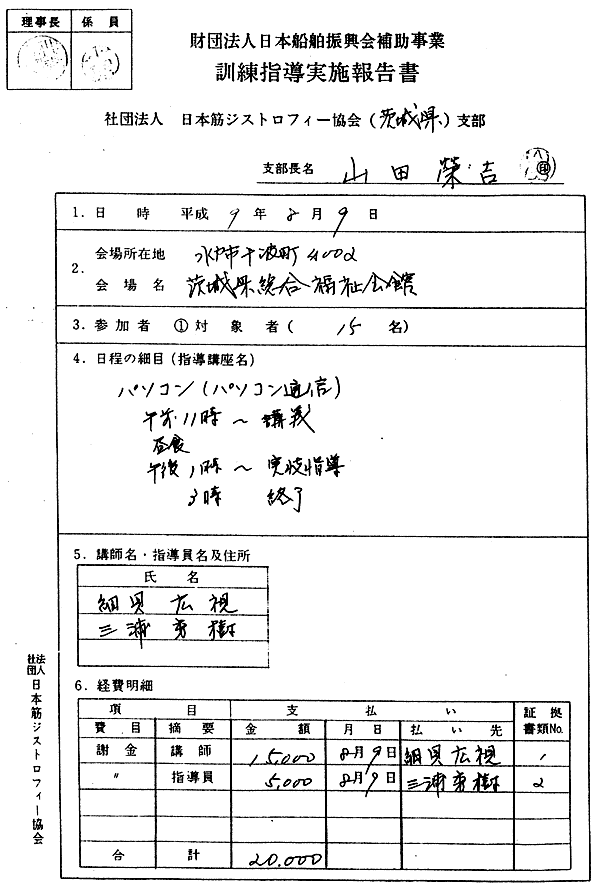 理事長 係員
財団法人日本船舶振興会補助事業
訓練指導実施報告書
社団法人 日本筋ジストロフィー協会(茨城県)支部
支部長名 山田榮吉
1.日時 平成9年8月9日
2.
会場所在地 水戸市千波町4002
会場名 茨城県総合福祉会館
3.参加者 ①対象者( 15名)
4.日程の細目(指導講座名)
パソコン(パソコン通信)
午前11時~講義
昼食
午後1時~実技指導
3時 終了
5.講師名・指導員名及住所
氏名
細貝広視
三浦
6.経費明細
項目 支払い 証拠書類No.
費目 摘要 金額 月日 払い先
謝金 講師 15,000 8月9日 細貝広視 1
〃 指導員 5,000 8月9日 三浦 2
合計 20,000
社団法人 日本筋ジストロフィー協会